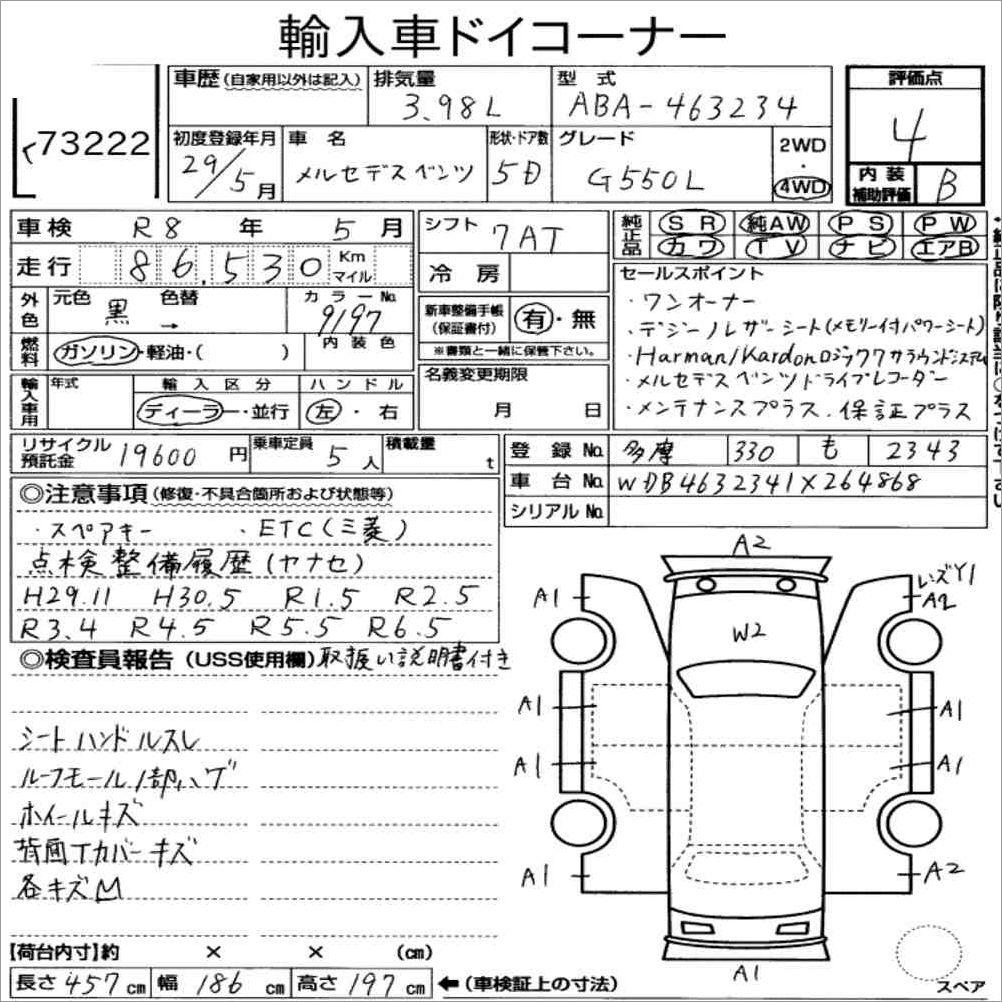 輸入車ドイコーナー
73222
車歴(自家用以外は記入) 排気量 3.98L 型式 ABA-463234
評価点 4
初度登録年月 29/5月 車名 メルセデスベンツ 形状・ドア数 5D グレード G550L 2WD・4WD
内装補助評価 B
車検 R8年 5月 シフト 7AT
純正品 SR 純AW PS PW
カワ TV ナビ エアB
走行 86,530 Km マイル 冷房
外色 元色 黒 色替 → カラーNo. 9197
内装色
新車整備手帳(保証書付) 有・無
※書類と一緒に保管下さい。
セールスポイント
・ワンオーナー
・デジーノレザーシート(メモリー付パワーシート)
・Harman/Kardonロジック7サラウンドシステム
・メルセデスベンツドライブレコーダー
・メンテナンスプラス.保証プラス
燃料 ガソリン・軽油・( )
名義変更期限 月 日
輸入車用 年式 輸入区分 ディーラー・並行 ハンドル 左・右
リサイクル預託金 19600円 乗車定員 5人 積載量 t
登録No. 多摩 330 も 2343
車台No. WDB4632341X264868
シリアルNo.
◎注意事項(修復・不具合箇所および状態等)
・スペアキー ・ETC(三菱)
点検整備履歴(ヤナセ)
H29.11 H30.5 R1.5 R2.5
R3.4 R4.5 R5.5 R6.5
◎検査員報告(USS使用欄)取扱い説明書付き
シートハンドルスレ
ルーフモール1部ハゲ
ホイールキズ
背面Tカバーキズ
各キズM
A2
A1
レズY1
A2
W2
A1
A1
A1
A1
A1
A2
A1
スペア
【荷台内寸】約 × × (cm)
長さ 457cm 幅 186cm 高さ 197cm ←(車検証上の寸法)